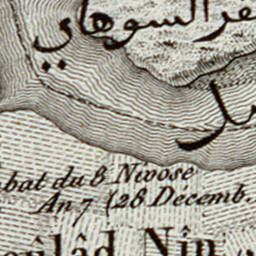 فر السوهاي
bat du 8 Nivose
An 7 (28 Décemb.
oulâd Nîn